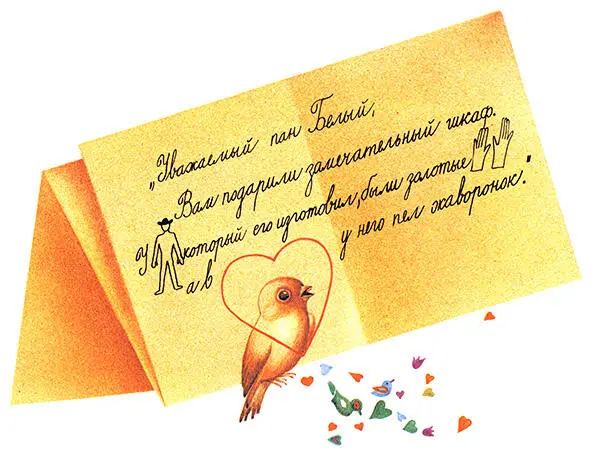 „Уважаемый пан Белый,
Вам подарили замечательный шкаф.
У который его изготовил, были золотые
а в у него пел жаворонок."